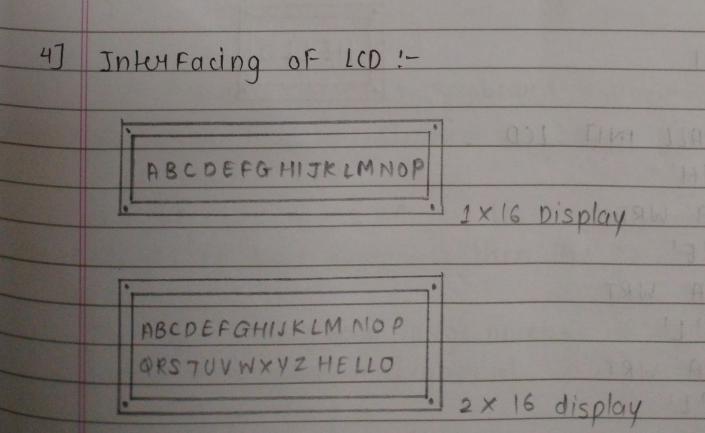 4] Interfacing of LCD :-
ABCDEFGHIJKLMNOP
1 x 16 Display
ABCDEFGHIJKLMNOP
QRSTUVWXYZ HELLO
2 x 16 display